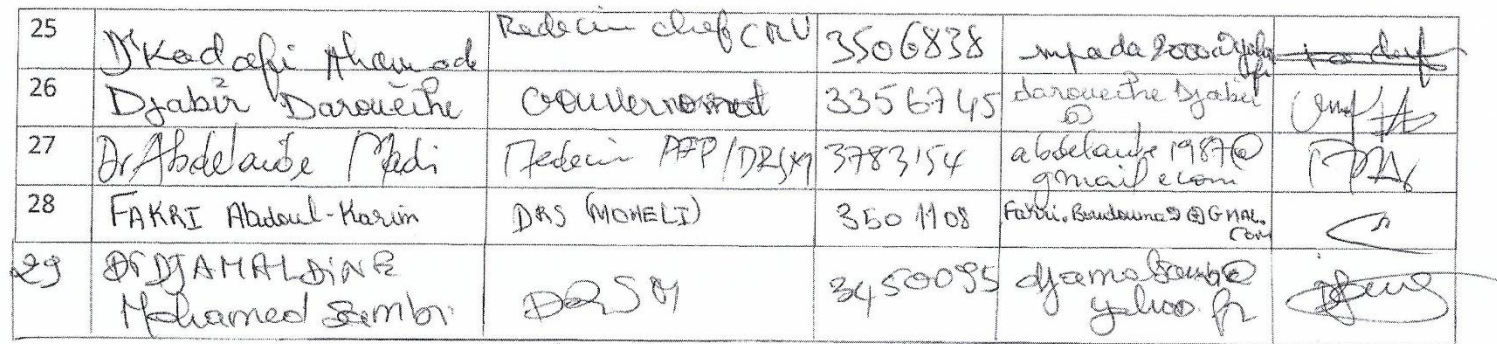 25 Dr Kadafi Ahamade Medecin chef CMU 3506838 mpada2000@yahoo.fr
26 Djabir Daroueche Gouvernorat 3356745 daroueche Djabir @
27 Dr Abdelaude Madi Medecin PFP/DRSM 3783154 abdelaude1987@
gmail.com
28 FAKRI Abdoul-Karim DRS (MOHELI) 350 1108 Fakri.Boudouma9@GMAL.
COM
29 Dr DJAMALDINE DRSM 3450095 djamalsambi@
Mohamed Sambi yahoo.fr